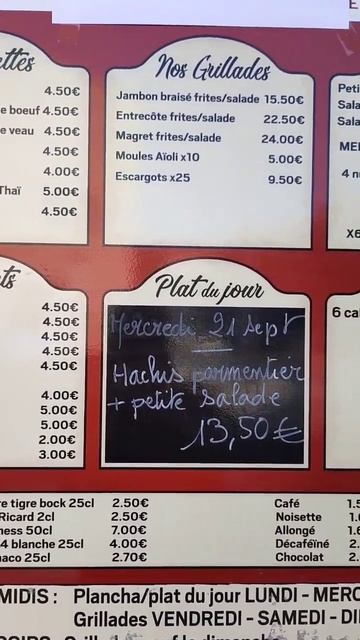 Nos Grillades
Jambon braisé frites/salade 15.50€
Entrecôte frites/salade 22.50€
Magret frites/salade 24.00€
Moules Aïoli x10 5.00€
Escargots x25 9.50€
4.50€
boeuf 4.50€
veau 4.50€
4.50€
4.00€
Thaï 5.00€
4.50€
Plat du jour
Mercredi 21 Sept
Hachis parmentier
+ petite salade
13,50€
4.50€
4.50€
4.50€
4.50€
4.50€
4.00€
5.00€
5.00€
2.00€
3.00€
6
tigre bock 25cl 2.50€
Ricard 2cl 2.50€
50cl 7.00€
4 blanche 25cl 4.00€
25cl 2.70€
Café
Noisette
Allongé
Décaféiné
Chocolat
MIDIS : Plancha/plat du jour LUNDI -
Grillades VENDREDI - SAMEDI -